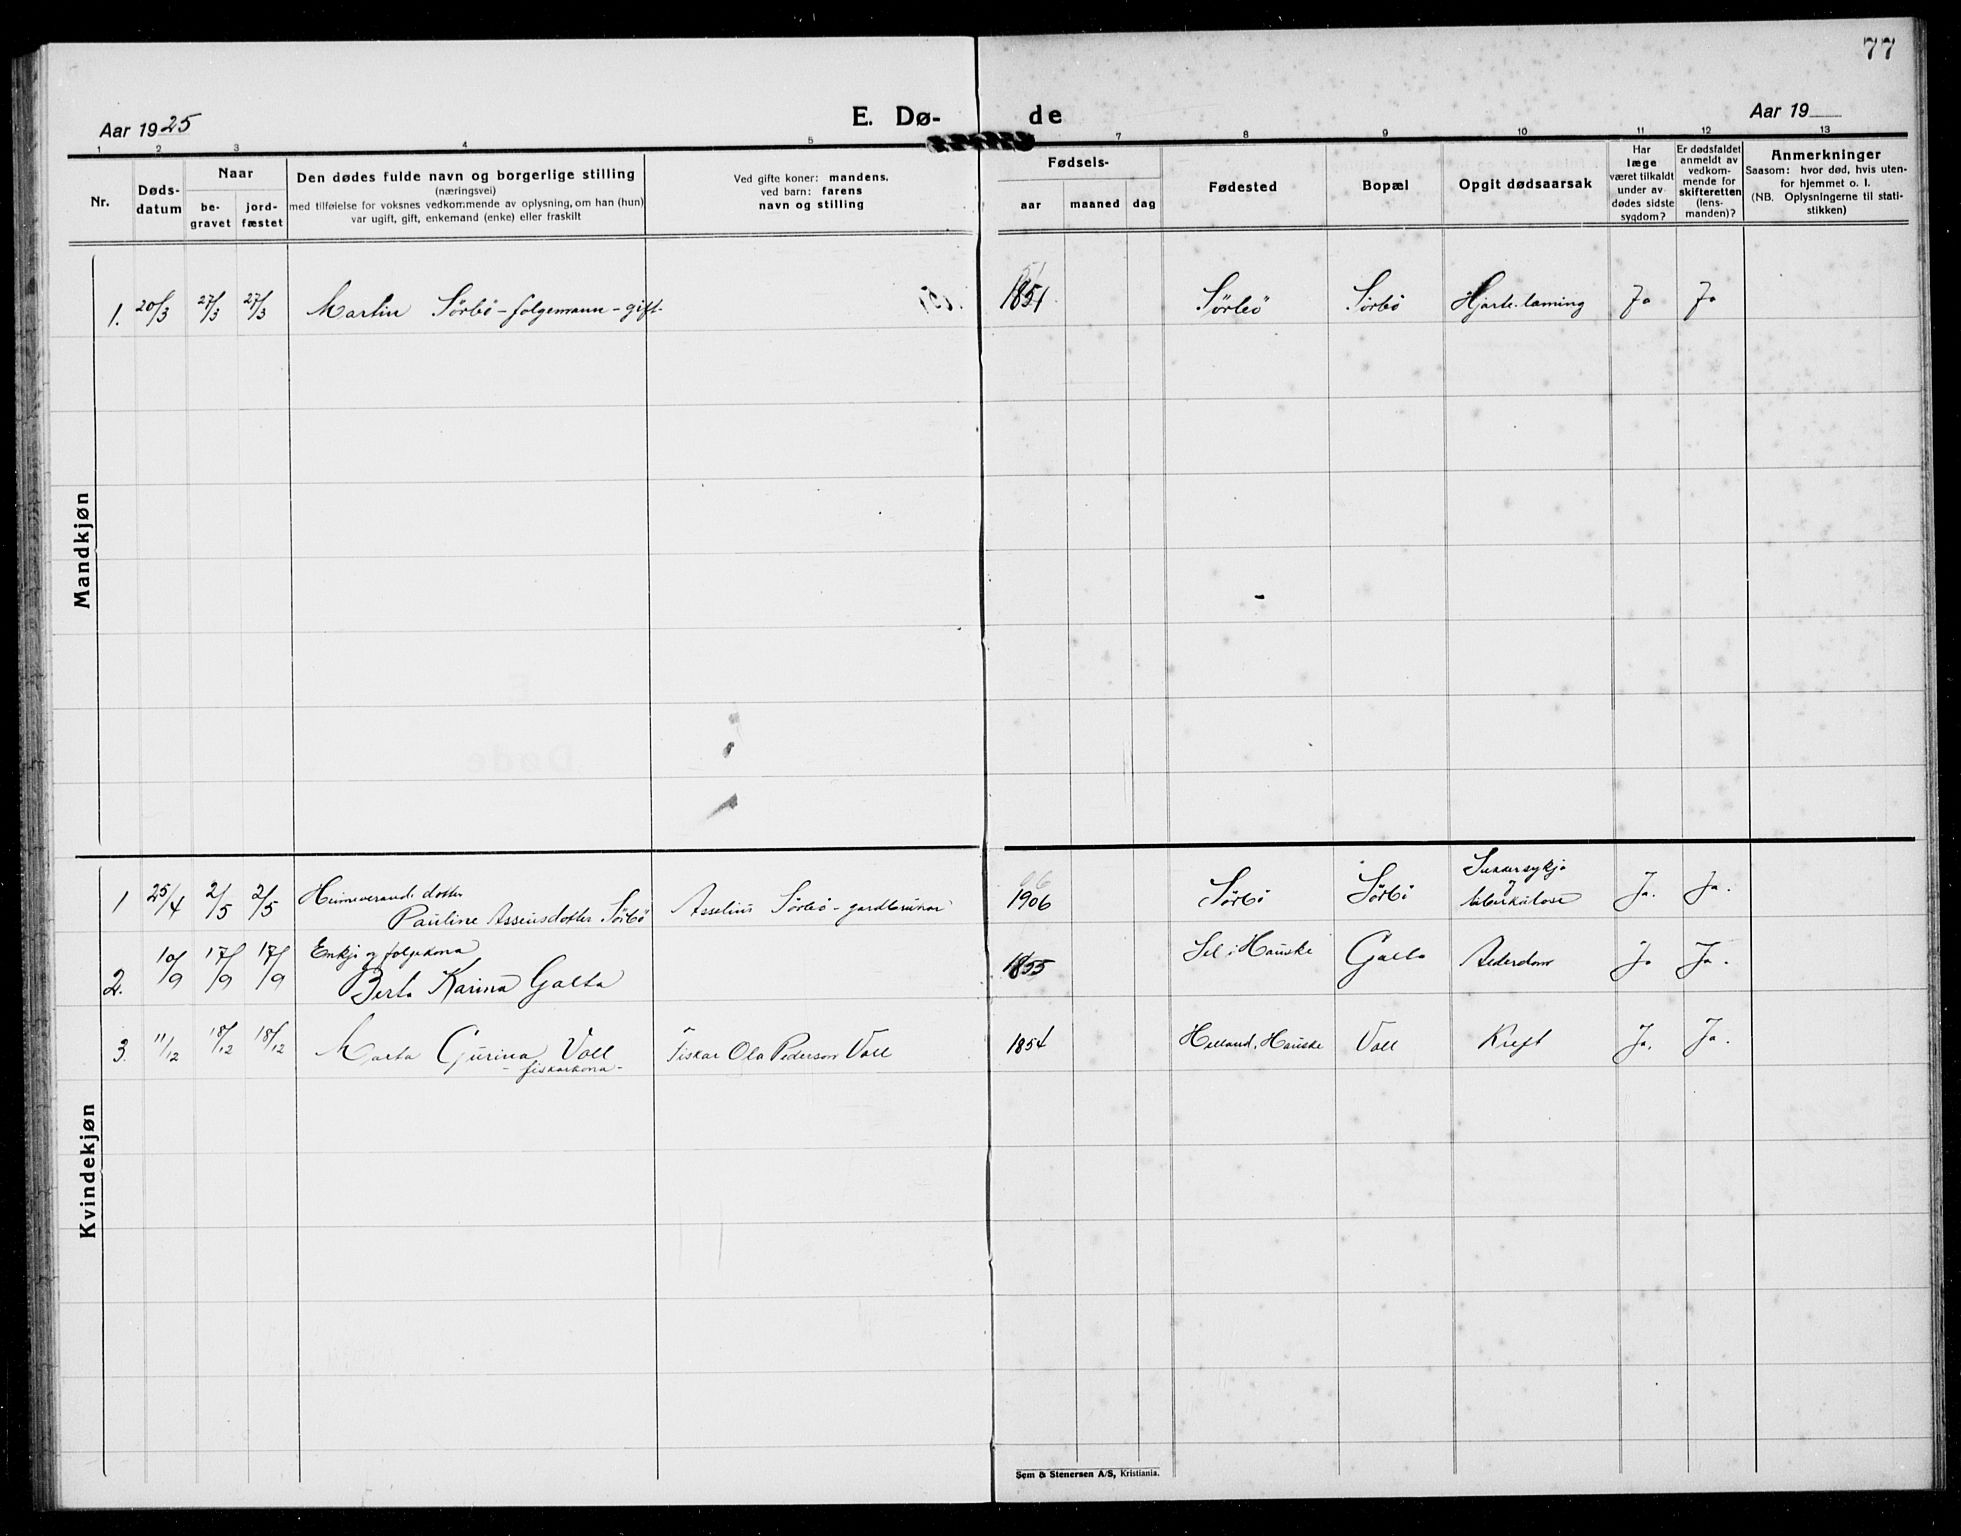 77
Aar 1925 E. Dø- de Aar 19
1 2 3 4 5 7 8 9 10 11 12 13
Nr.
Døds-
datum
Naar
be-
gravet
jord-
fæstet
Den dødes fulde navn og borgerlige stilling
(næringsvei)
med tilføielse for voksnes vedkommende av oplysning, om han (hun)
var ugift, gift, enkemand (enke) eller fraskilt
Ved gifte koner: mandens.
ved barn: farens
navn og stilling
Fødsels-
aar maaned dag
Fødested
Bopæl
Opgit dødsaarsak
Har
læge
været tilkaldt
under av-
dødes sidste
sygdom?
Er dødsfaldet
anmeldt av
vedkom-
mende for
skifteretten
(lens-
manden)?
Anmerkninger
Saasom: hvor død, hvis uten-
for hjemmet o. l.
(NB. Oplysningerne til stati-
stikken)
Mandkjøn
1. 20/3 27/3 27/3 Martin Sörbö - folgemann - gift. 1851 Sörbö Sörbö Hjarte-laming Ja Ja
Kvindekjøn
1 25/4 2/5 2/5 Heimeverand. dotter
Pauline Asseusdotter Sörbö Asselius Sörbö - gardbrukar 1906 Sörbö Sörbö Sukkersykje
og
tuberkulose Ja. Ja.
2. 10/9 17/9 17/9 Enkje og folgekona
Berta Karina Galta 1855 Sel i Hauske Galta Alderdom Ja Ja.
3. 11/12 18/12 18/12 Marta Gurina Voll
- fiskarkona -
Fiskar Ola Pederson Voll 1854 Helland, Hauske Voll Kreft Ja. Ja.
Sem & Stenersen A/S, Kristiania.